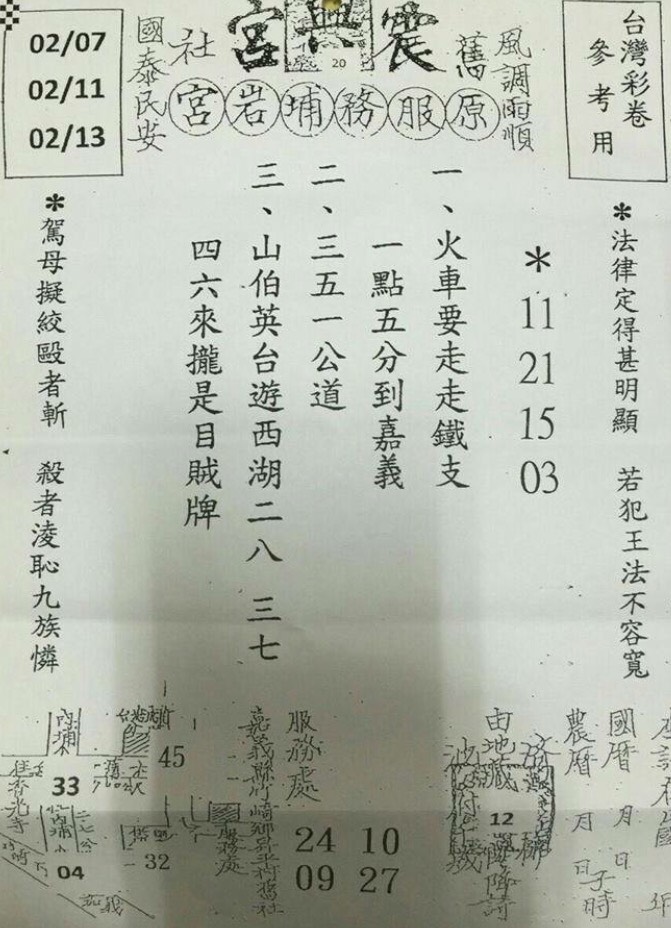 台灣彩卷
參考用
風調雨順
舊
震興宮
20
社
國泰民安
原服務埔岩宮
02/07
02/11
02/13
＊法律定得甚明顯 若犯王法不容寬
＊
11
21
15
03
一、火車要走走鐵支
一點五分到嘉義
二、三五一公道
三、山伯英台遊西湖二八 三七
四六來攏是目賊牌
＊駕母擬絞毆者斬 殺者凌恥九族憐
國曆 月 日
農曆 月 日子時
由地藏
12
降詩
服務處
10
27
24
09
嘉義縣竹崎鄉
服務處
45
32
內埔
33
04
嘉義